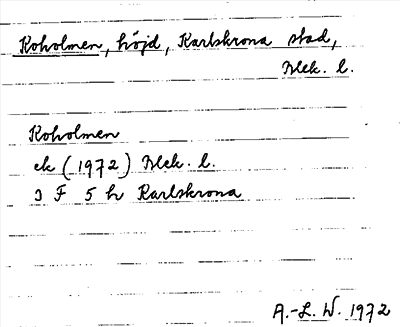 Koholmen, höjd, Karlskrona stad,
Blek. l.
Koholmen
ek (1972) Blek. l.
3 F 5 h Karlskrona
A.-L. W. 1972